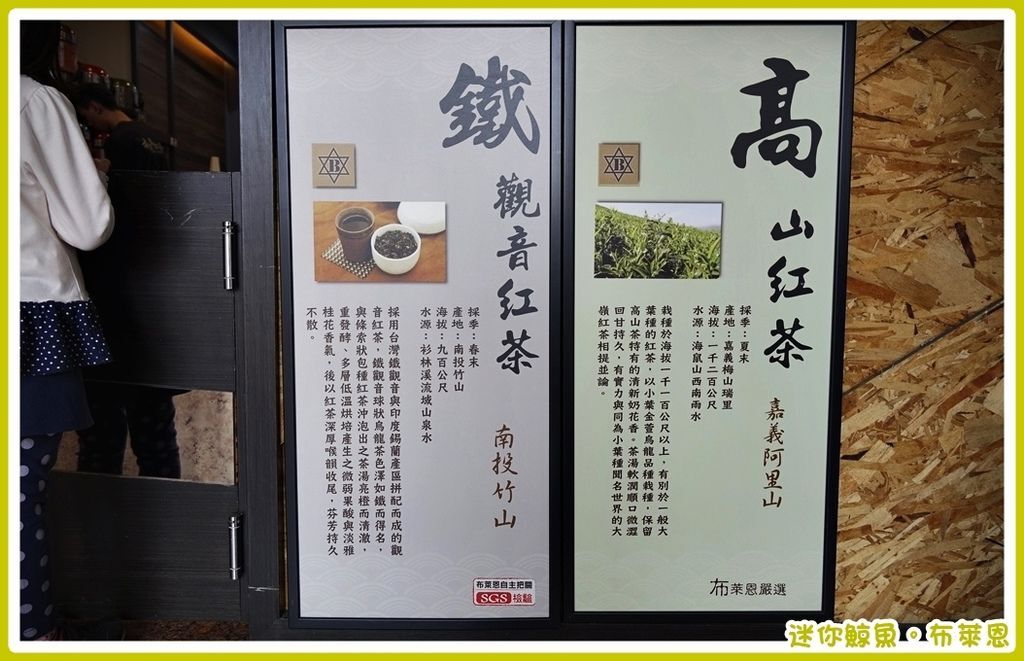 高山紅茶
嘉義阿里山
B
採季：夏末
產地：嘉義梅山瑞里
海拔：一千二百公尺
水源：海鼠山西南雨水
栽種於海拔一千一百公尺以上，有別於一般大
葉種的紅茶，以小葉金萱烏龍品種栽種，保留
高山茶特有的清新奶花香。茶湯軟潤順口微澀
回甘持久，有實力與同為小葉種聞名世界的大
嶺紅茶相提並論。
布萊恩嚴選
鐵觀音紅茶
南投竹山
B
採季：春末
產地：南投竹山
海拔：九百公尺
水源：杉林溪流域山泉水
採用台灣鐵觀音與印度錫蘭產區拼配而成的觀
音紅茶，鐵觀音球狀烏龍茶色澤如鐵而得名，
與條索狀包種紅茶沖泡出之茶湯亮橙而清澈，
重發酵、多層低溫烘培產生之微弱果酸與淡雅
桂花香氣，後以紅茶深厚喉韻收尾，芬芳持久
不散。
布萊恩自主把關
SGS 檢驗
迷你鯨魚。布萊恩